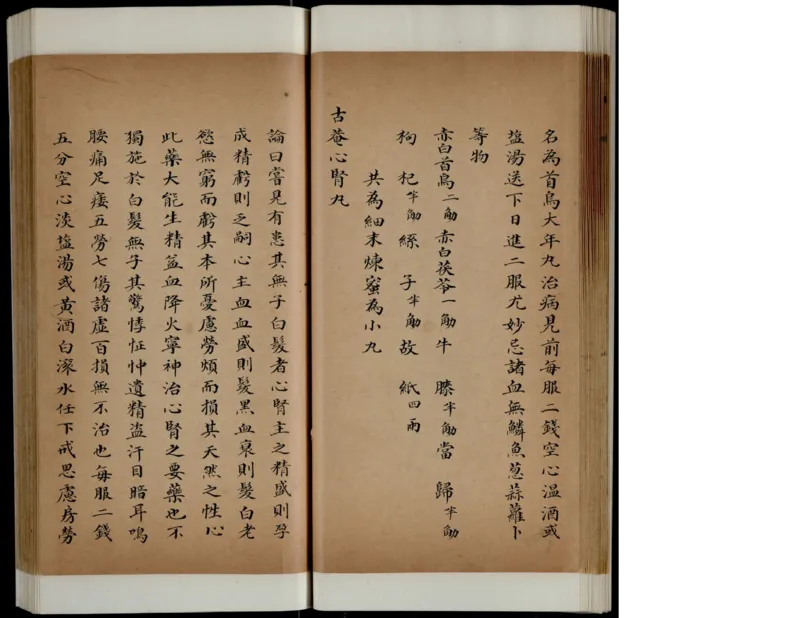 名為首烏大年丸治病見前每服二錢空心溫酒或
塩湯送下日進二服尤妙忌諸血無鱗魚葱蒜蘿卜
等物
赤白首烏二觔赤白茯苓一觔牛膝半觔當歸半觔
枸杞半觔絲子半觔故紙四兩
共為細末煉蜜為小丸
古菴心腎丸
論曰嘗見有患其無子白髮者心腎主之精盛則孕
成精虧則乏嗣心主血血盛則髮黑血衰則髮白老
慾無窮而虧其本所憂慮勞煩而損其天然之性心
此藥大能生精益血降火寧神治心腎之要藥也不
獨施於白髮無子其驚悸怔忡遺精盜汗目暗耳鳴
腰痛足痿五勞七傷諸虛百損無不治也每服二錢
五分空心淡塩湯或黃酒白滚水任下戒思慮房勞